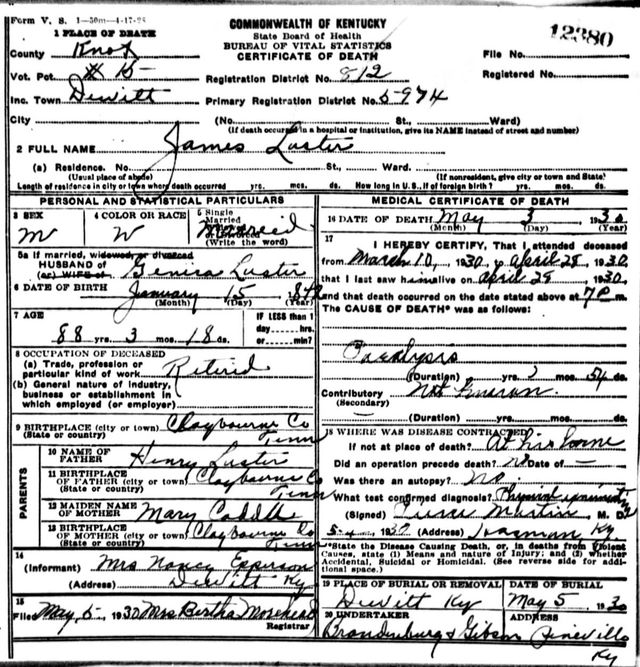 Form V. S. 1-50m-4-17-28
COMMONWEALTH OF KENTUCKY
State Board of Health
BUREAU OF VITAL STATISTICS
CERTIFICATE OF DEATH
12380
1 PLACE OF DEATH
County Knox
File No.
Vot. Pct. # 15
Registration District No. 812
Registered No.
Inc. Town Dewitt
Primary Registration District No. 5974
City (No. St., Ward)
(If death occurred in a hospital or institution, give its NAME instead of street and number)
2 FULL NAME James Luster
(a) Residence. No. St., Ward.
(Usual place of abode) (If nonresident, give city or town and State)
Length of residence in city or town where death occurred yrs. mos. ds. How long in U. S., if of foreign birth? yrs. mos. ds.
PERSONAL AND STATISTICAL PARTICULARS
3 SEX M
4 COLOR OR RACE W
5 Single Married Widowed or Divorced Married
(Write the word)
5a If married, widowed, or divorced
HUSBAND of
(or) WIFE of Luster
6 DATE OF BIRTH January 15
(Month) (Day) (Year)
7 AGE 88 yrs. 3 mos. 18 ds.
IF LESS than 1
day hrs.
or min?
8 OCCUPATION OF DECEASED
(a) Trade, profession or
particular kind of work Retired
(b) General nature of industry,
business or establishment in
which employed (or employer)
9 BIRTHPLACE (city or town) Claybourne Co
(State or country) Tenn
PARENTS
10 NAME OF
FATHER Henry Luster
11 BIRTHPLACE
OF FATHER (city or town) Claybourne Co
(State or country) Tenn
12 MAIDEN NAME
OF MOTHER Mary
13 BIRTHPLACE
OF MOTHER (city or town) Claybourne Co
(State or country) Tenn
14
(Informant) Mrs Nancy Epperson
(Address) Dewitt Ky
15
Filed May 5 1930 Mrs Bertha Morehead
Registrar
MEDICAL CERTIFICATE OF DEATH
16 DATE OF DEATH May 3 1930
(Month) (Day) (Year)
17
I HEREBY CERTIFY, That I attended deceased
from March 10, 1930, to April 28, 1930,
that I last saw him alive on April 28, 1930,
and that death occurred on the date stated above at 7 P m.
The CAUSE OF DEATH* was as follows:
Paralysis
(Duration) yrs. mos. 54 ds.
Contributory Not known
(Secondary)
(Duration) yrs. mos. ds.
18 WHERE WAS DISEASE CONTRACTED
If not at place of death? At his home
Did an operation precede death? No Date of -
Was there an autopsy? No.
What test confirmed diagnosis? Physical
(Signed) Martin, M. D.
5-4 1930 (Address) Ky.
*State the Disease Causing Death, or, in deaths from Violent
Causes, state (1) Means and nature of Injury; and (2) whether
Accidental, Suicidal or Homicidal. (See reverse side for addi-
tional space.)
19 PLACE OF BURIAL OR REMOVAL Dewitt Ky
DATE OF BURIAL May 5 1930
20 UNDERTAKER Brandenburg & Gibson
ADDRESS Pineville Ky